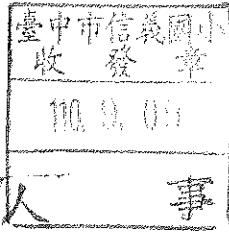 臺中市信義國小
收發章
110. 9. 0
人事